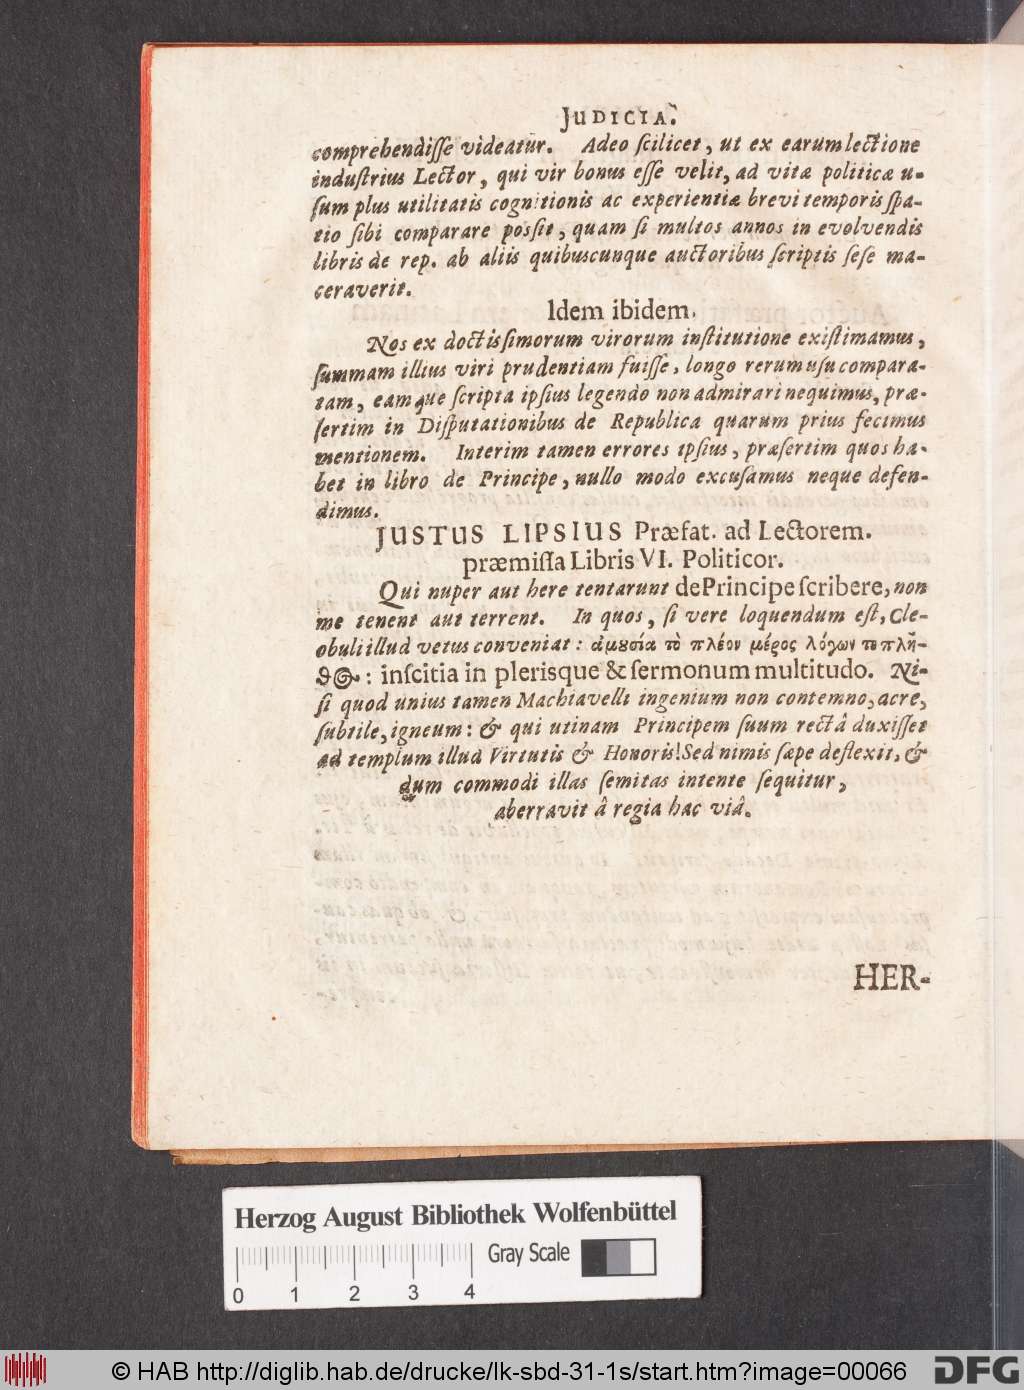 JUDICIA.
comprehendiſſe videatur. Adeo ſcilicet, ut ex earum lectione
induſtrius Lector, qui vir bonus eſſe velit, ad vitæ politicæ u-
ſum plus utilitatis cognitionis ac experientiæ brevi temporis ſpa-
tio ſibi comparare poſsit, quam ſi multos annos in evolvendis
libris de rep. ab aliis quibuscunque auctoribus ſcriptis ſeſe ma-
ceraverit.
Idem ibidem.
Nos ex doctiſsimorum virorum inſtitutione exiſtimamus,
ſummam illius viri prudentiam fuiſſe, longo rerum uſu compara-
tam, eamque ſcripta ipſius legendo non admirari nequimus, præ-
ſertim in Diſputationibus de Republica quarum prius fecimus
mentionem. Interim tamen errores ipſius, præſertim quos ha-
bet in libro de Principe, nullo modo excuſamus neque defen-
dimus.
JUSTUS LIPSIUS Præfat. ad Lectorem.
præmiſſa Libris VI. Politicor.
Qui nuper aut here tentarunt de Principe ſcribere, non
me tenent aut terrent. In quos, ſi vere loquendum eſt, Cle-
obuli illud vetus conveniat: ἀμουσία τὸ πλέον μέρος λόγων τε πλῆ-
θος: inſcitia in plerisque & ſermonum multitudo. Ni-
ſi quod unius tamen Machiavelli ingenium non contemno, acre,
ſubtile, igneum: & qui utinam Principem ſuum rectâ duxiſſet
ad templum illud Virtutis & Honoris! Sed nimis ſæpe deflexit, &
dum commodi illas ſemitas intente ſequitur,
aberravit â regia hac viâ.
HER-
Herzog August Bibliothek Wolfenbüttel
Gray Scale
0 1 2 3 4
© HAB http://diglib.hab.de/drucke/lk-sbd-31-1s/start.htm?image=00066
DFG